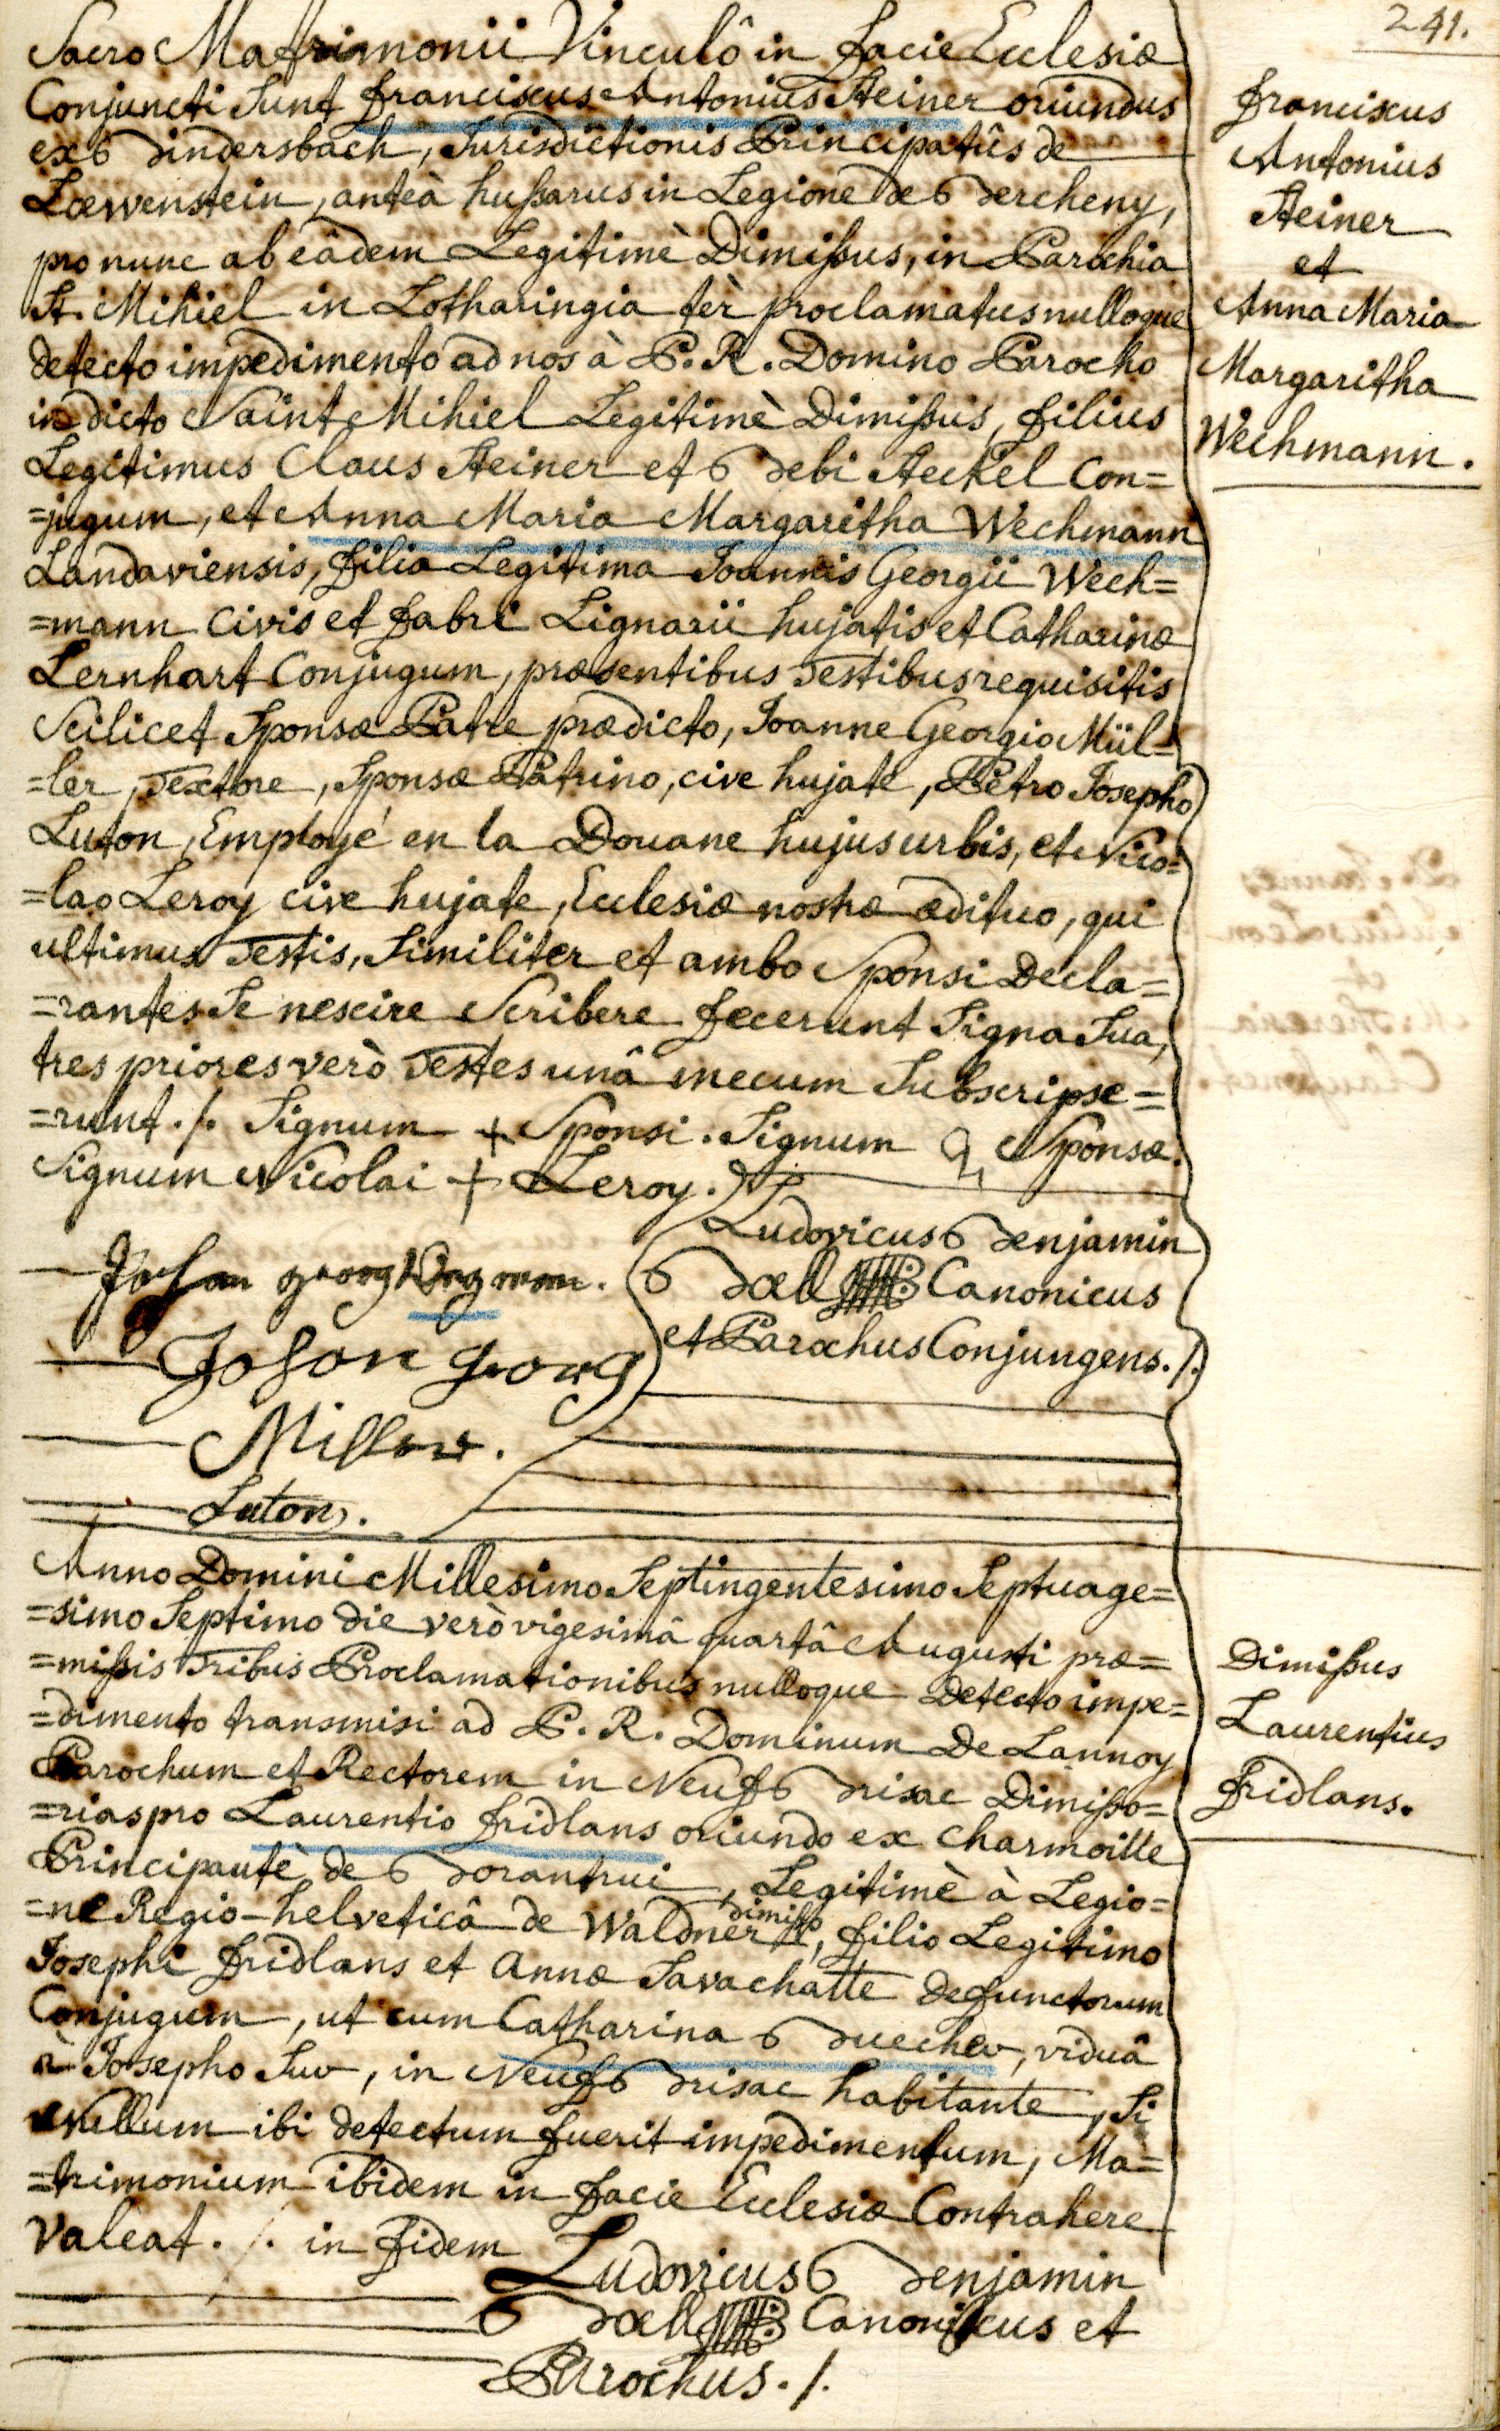 241.
Sacro Matrimonii Vinculô in facie Ecclesiæ
Conjuncti Sunt franciscus Antonius Steiner oriundus
ex Bindersbach, Jurisdictionis Principatûs de
Lœwenstein, anteà hußarus in Legione de Bercheny,
pro nunc ab eâdem Legitimè Dimißus, in Parochia
St. Mihiel in Lotharingia tèr proclamatus nulloque
detecto impedimento ad nos à P. R. Domino Parocho
in dicto Saint Mihiel Legitimè Dimißus, filius
Legitimus Claus Steiner et Bebi Steckel Con=
=jugum, et Anna Maria Margaritha Wechmann
Landaviensis, filia Legitima Joannis Georgii Wech=
=mann Civis et fabri Lignarii hujatis et Catharinæ
Lernhart Conjugum, præsentibus Testibus requisitis
Scilicet Sponsæ Patre prædicto, Joanne Georgio Mül=
=ler, Textore, Sponsæ Patrino, cive hujate, Petro Josepho
Luton, Employé en la Douane hujus urbis, et Nico=
=lao Leroy cive hujate, Ecclesiæ nostræ ædituo, qui
ultimus Testis, Similiter et ambo Sponsi Decla=
=rantes Se nescire Scribere fecerunt Signa Sua,
tres priores verò Testes unâ mecum Subscripse=
=runt ./. Signum + Sponsi. Signum Sponsæ.
Signum Nicolai + Leroy.
Ludovicus Benjamin
Bœll Canonicus
et Parochus Conjungens ./.
Johan georg
Johan Georg
Miller.
Luton.
franciscus
Antonius
Steiner
et
Anna Maria
Margaritha
Wechmann.
Anno Domini Millesimo Septingentesimo Septuage=
=simo Septimo die verò vigesimâ quartâ Augusti præ=
=mißis Tribus Proclamationibus nulloque Detecto impe=
=dimento transmisi ad P. R. Dominum De Lannoy
Parochum et Rectorem in Neuf Brisac Dimißo=
=rias pro Laurentio fridlans oriundo ex Charmoille
Principauté de Borantrui, Legitimè à Legio=
=ne Regio-helveticâ de Waldner dimißo, filio Legitimo
Josephi fridlans et Annæ Savachatte defunctorum
Conjugum, ut cum Catharina Buecher, viduâ
à Josepho Suv, in Neuf Brisac habitante, Si
Nullum ibi detectum fuerit impedimentum, Ma=
=trimonium ibidem in facie Ecclesiæ Contrahere
Valeat ./. in fidem
Ludovicus Benjamin
Bœll Canonicus et
Parochus ./.
Dimißus
Laurentius
fridlans.